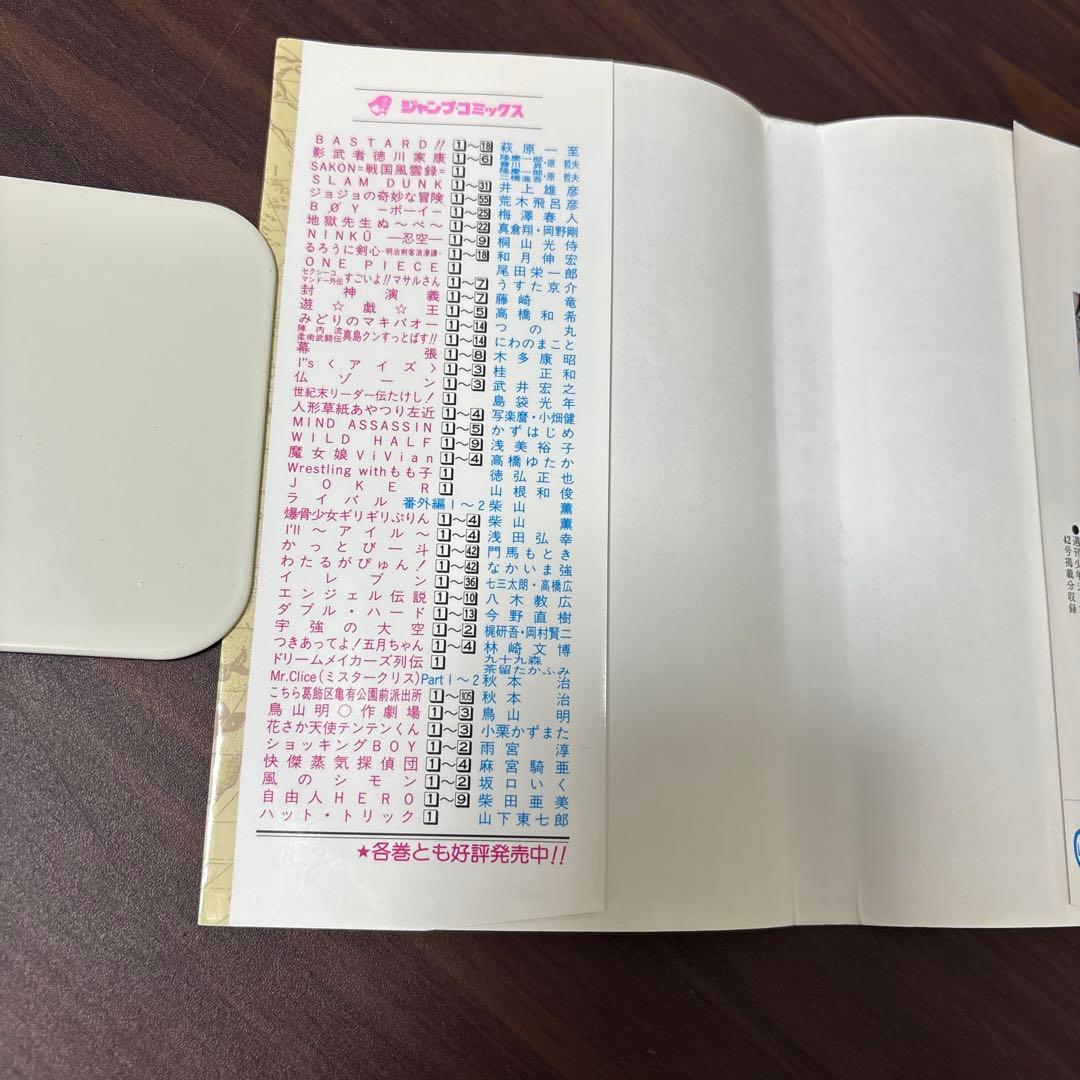 ジャンプ・コミックス
BASTARD!! 1〜18 萩原一至
影武者徳川家康 1〜6 隆慶一郎・會川昇・原哲夫
SAKON=戦国風雲録= 1 隆慶一郎・二橋進吾・原哲夫
SLAM DUNK 1〜31 井上雄彦
ジョジョの奇妙な冒険 1〜55 荒木飛呂彦
BØY —ボーイ— 1〜25 梅澤春人
地獄先生ぬ〜べ〜 1〜22 真倉翔・岡野剛
NINKŪ —忍空— 1〜9 桐山光侍
るろうに剣心-明治剣客浪漫譚- 1〜18 和月伸宏
ONE PIECE 1 尾田栄一郎
セクシーコマンドー外伝 すごいよ!!マサルさん 1〜7 うすた京介
封神演義 1〜7 藤崎竜
遊☆戯☆王 1〜5 高橋和希
みどりのマキバオー 1〜14 つの丸
陣内流柔術武闘伝 真島クンすっとばす!! 1〜14 にわのまこと
幕張 1〜8 木多康昭
I"s〈アイズ〉 1〜3 桂正和
仏ゾーン 1〜3 武井宏之
世紀末リーダー伝たけし! 1 島袋光年
人形草紙あやつり左近 1〜4 写楽麿・小畑健
MIND ASSASSIN 1〜5 かずはじめ
WILD HALF 1〜9 浅美裕子
魔女娘ViVian 1〜4 高橋ゆたか
Wrestling withもも子 1 徳弘正也
JOKER 1 山根和俊
ライバル 番外編1〜2 柴山薫
爆骨少女ギリギリぷりん 1〜4 柴山薫
I'll 〜アイル〜 1〜4 浅田弘幸
かっとび一斗 1〜42 門馬もとき
わたるがぴゅん! 1〜42 なかいま強
イレブン 1〜36 七三太朗・高橋広
エンジェル伝説 1〜10 八木教広
ダブル・ハード 1〜13 今野直樹
宇強の大空 1〜2 梶研吾・岡村賢二
つきあってよ!五月ちゃん 1〜4 林崎文博
ドリームメイカーズ列伝 1 九十九森・茶留たかふみ
Mr.Clice(ミスタークリス) Part1〜2 秋本治
こちら葛飾区亀有公園前派出所 1〜105 秋本治
鳥山明○作劇場 1〜3 鳥山明
花さか天使テンテンくん 1〜3 小栗かずまた
ショッキングBOY 1〜2 雨宮淳
快傑蒸気探偵団 1〜4 麻宮騎亜
風のシモン 1〜2 坂口いく
自由人HERO 1〜9 柴田亜美
ハット・トリック 1 山下東七郎
★各巻とも好評発売中!!
●週刊少年
42号掲載分収録